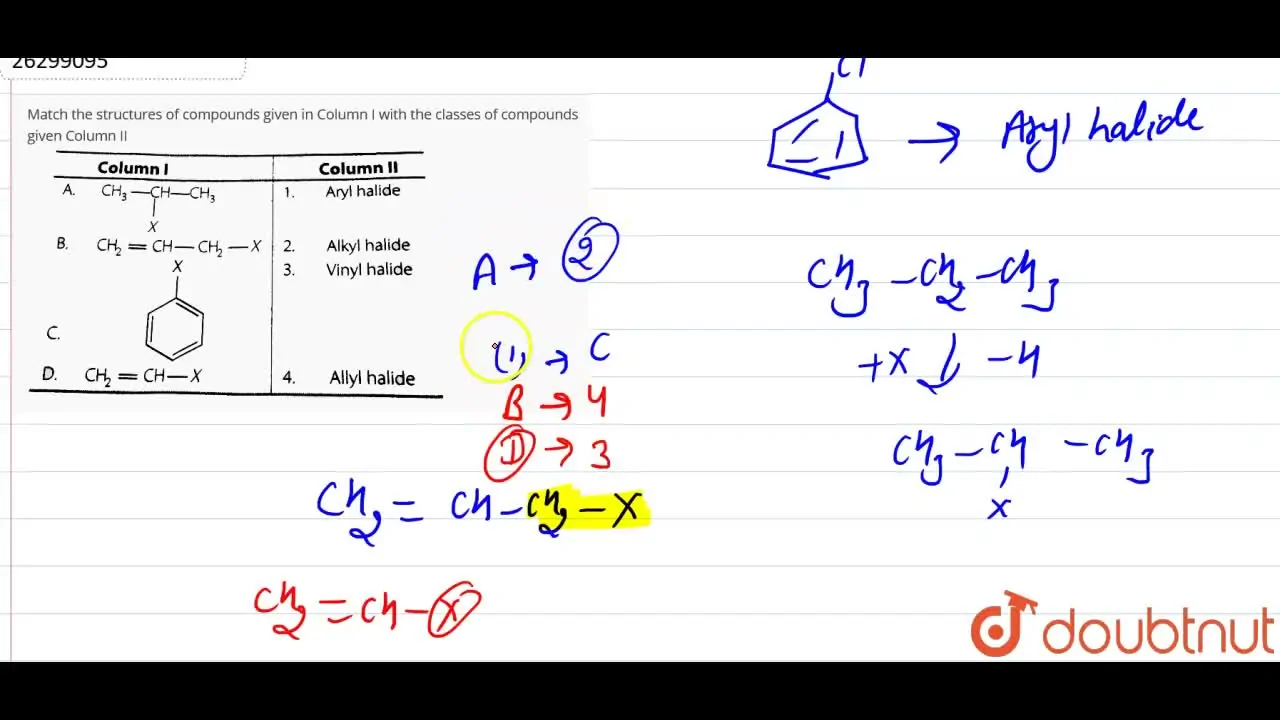 26299095
Match the structures of compounds given in Column I with the classes of compounds
given Column II
Column I Column II
A. CH3—CH—CH3 1. Aryl halide
X
B. CH2=CH—CH2—X 2. Alkyl halide
X 3. Vinyl halide
C.
D. CH2=CH—X 4. Allyl halide
A → 2
(1) → C
B → 4
D → 3
CH2 = CH – CH2 – X
CH2 = CH – X
Cl
→ Aryl halide
CH3 – CH2 – CH3
+X ↓ – H
CH3 – CH – CH3
X
doubtnut